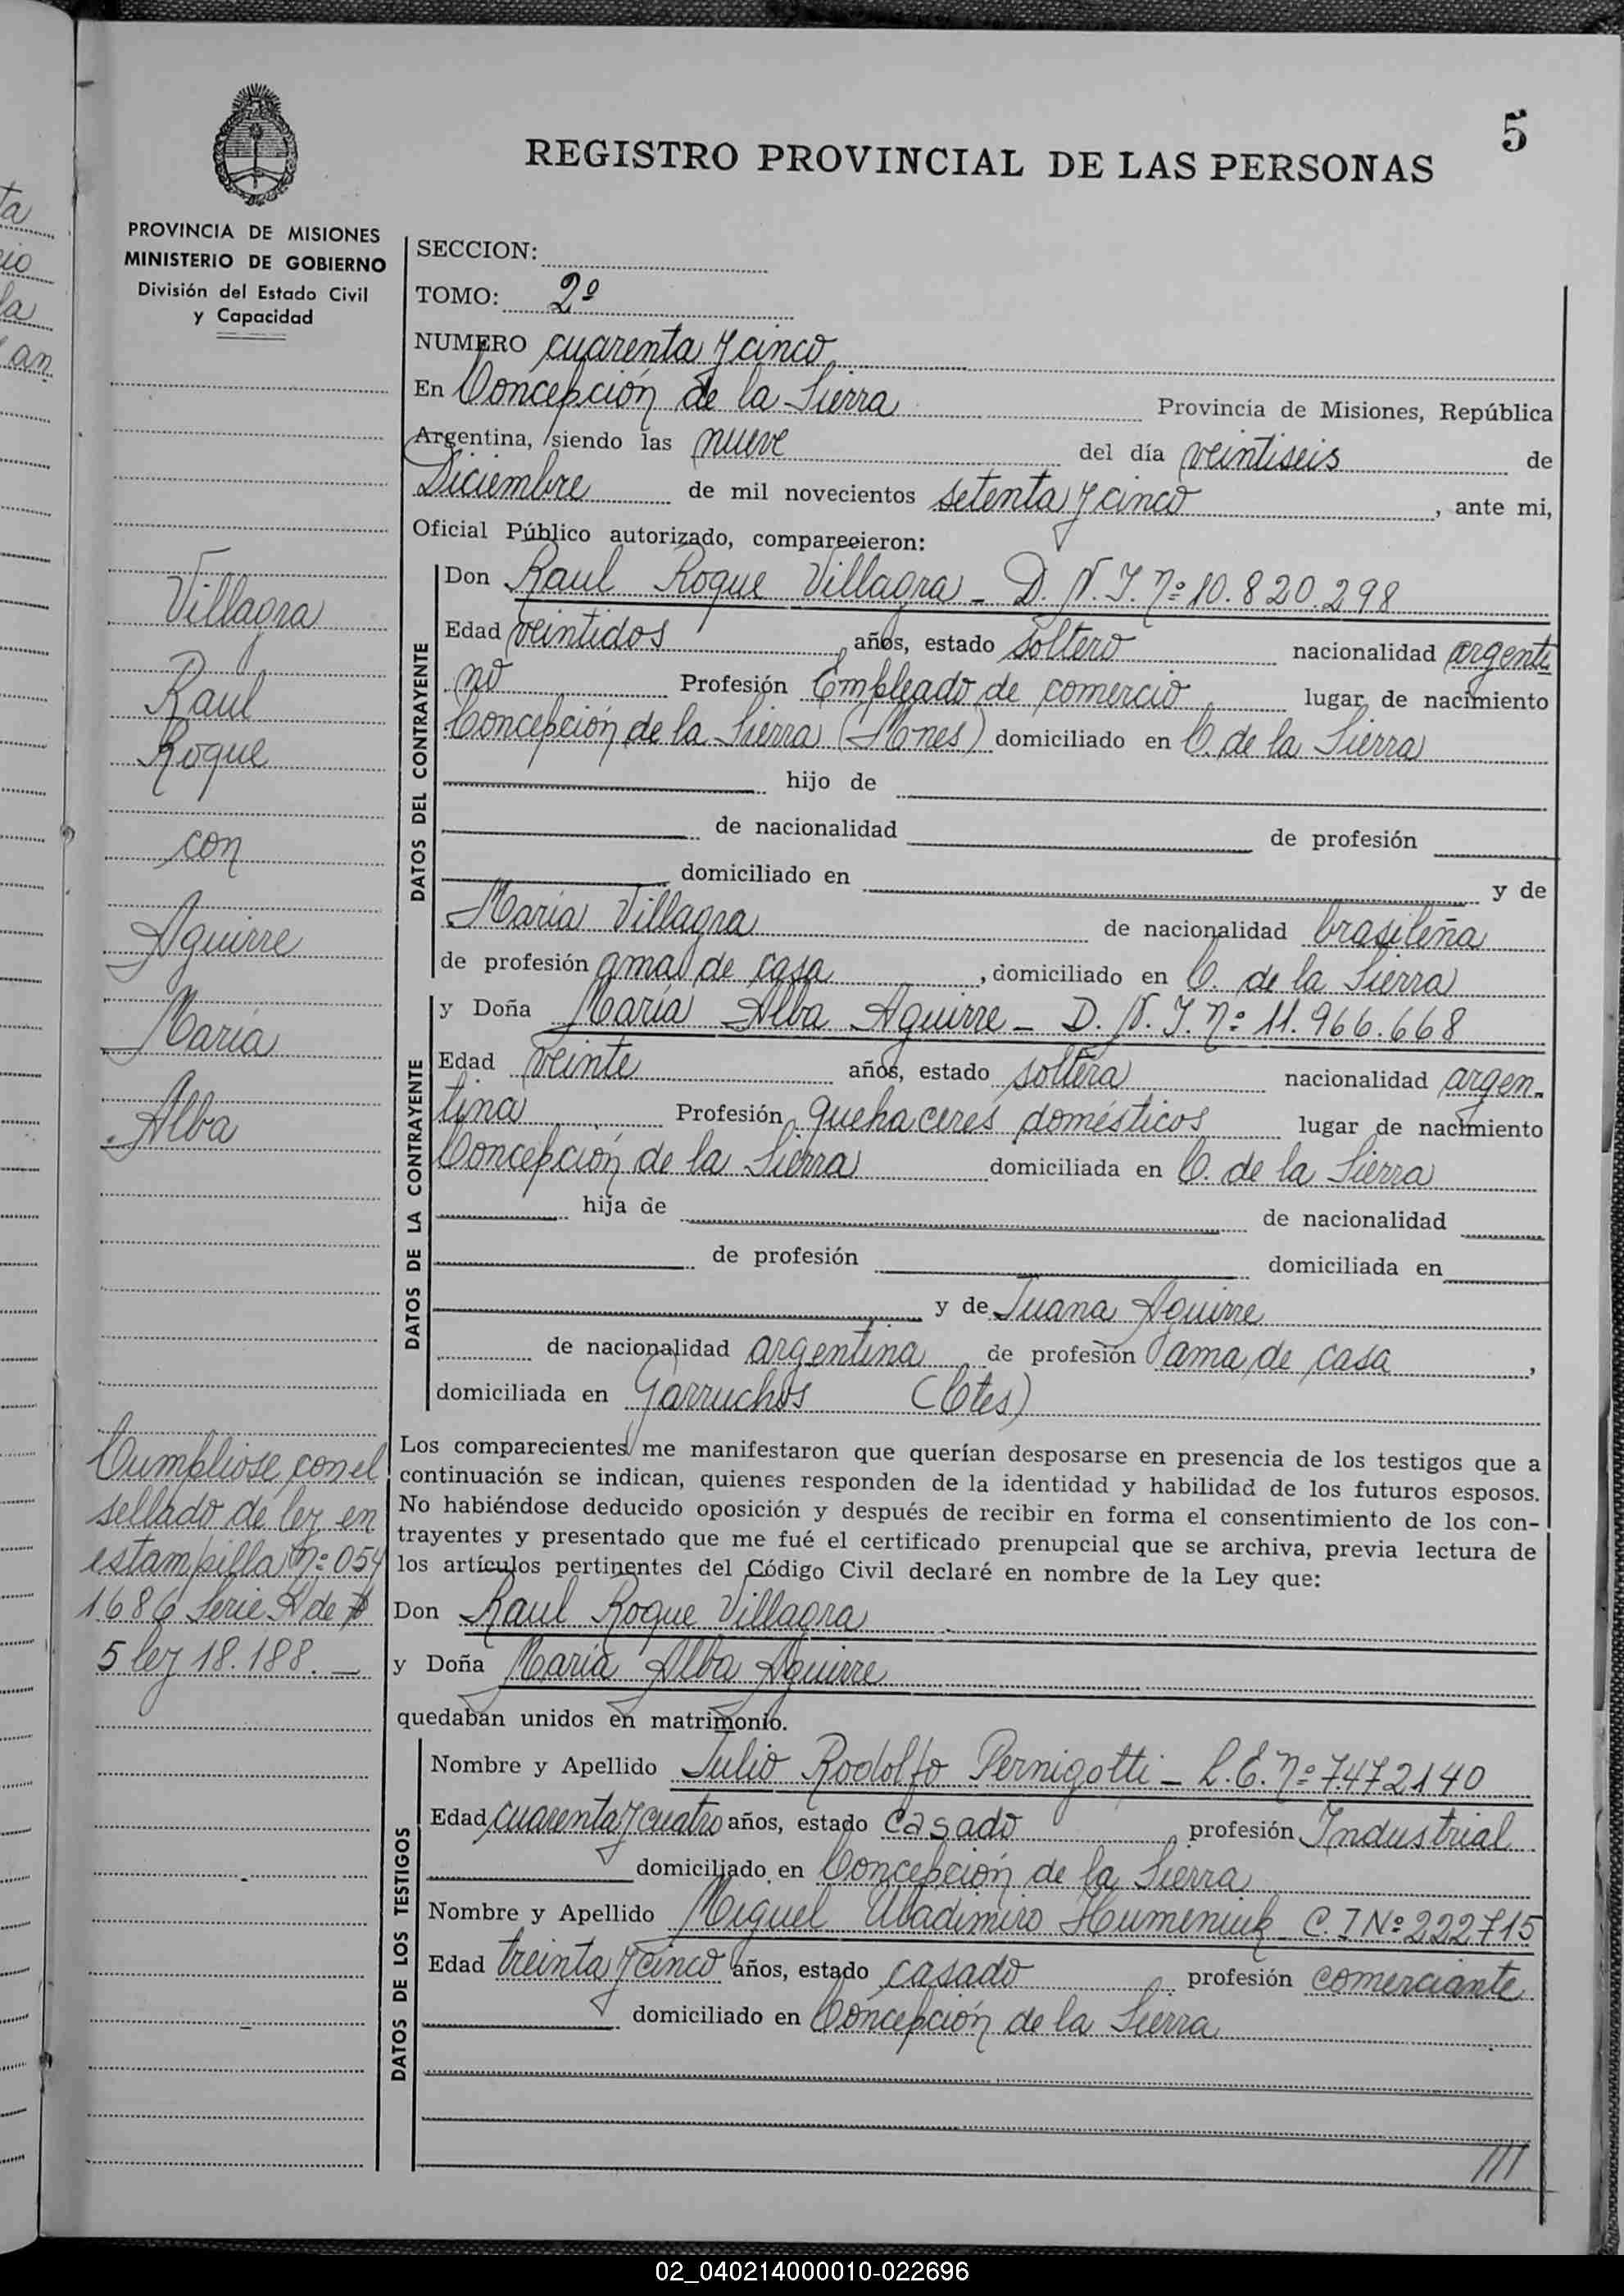 5
REGISTRO PROVINCIAL DE LAS PERSONAS
PROVINCIA DE MISIONES
MINISTERIO DE GOBIERNO
División del Estado Civil
y Capacidad
Villagra
Raul
Roque
con
Aguirre
Maria
Alba
Cumpliose con el
sellado de ley en
estampilla Nº 054
1686 Serie A de $
5 ley 18.188. —
SECCION:
TOMO: 2º
NUMERO cuarenta y cinco
En Concepción de la Sierra Provincia de Misiones, República
Argentina, siendo las nueve del día veintiseis de
Diciembre de mil novecientos setenta y cinco, ante mi,
Oficial Público autorizado, comparecieron:
DATOS DEL CONTRAYENTE
Don Raul Roque Villagra - D.N.I. Nº 10.820.298
Edad veintidos años, estado soltero nacionalidad argenti
no Profesión Empleado de comercio lugar de nacimiento
Concepción de la Sierra (Mnes) domiciliado en C. de la Sierra
hijo de
de nacionalidad de profesión
domiciliado en y de
Maria Villagra de nacionalidad brasileña
de profesión ama de casa, domiciliado en C. de la Sierra
DATOS DE LA CONTRAYENTE
y Doña María Alba Aguirre - D.N.I. Nº 11.966.668
Edad veinte años, estado soltera nacionalidad argen-
tina Profesión quehaceres domésticos lugar de nacimiento
Concepción de la Sierra domiciliada en C. de la Sierra
hija de de nacionalidad
de profesión domiciliada en
y de Juana Aguirre
de nacionalidad argentina de profesión ama de casa,
domiciliada en Garruchos (Ctes)
Los comparecientes me manifestaron que querían desposarse en presencia de los testigos que a
continuación se indican, quienes responden de la identidad y habilidad de los futuros esposos.
No habiéndose deducido oposición y después de recibir en forma el consentimiento de los con-
trayentes y presentado que me fué el certificado prenupcial que se archiva, previa lectura de
los artículos pertinentes del Código Civil declaré en nombre de la Ley que:
Don Raul Roque Villagra
y Doña María Alba Aguirre
quedaban unidos en matrimonio.
DATOS DE LOS TESTIGOS
Nombre y Apellido Julio Rodolfo Pernigotti - L.E. Nº 7.472140
Edad cuarenta y cuatro años, estado casado profesión Industrial
domiciliado en Concepción de la Sierra
Nombre y Apellido Miguel Uladimiro Humeniuk C.I Nº 222715
Edad treinta y cinco años, estado casado profesión comerciante
domiciliado en Concepción de la Sierra
///
02_040214000010-022696